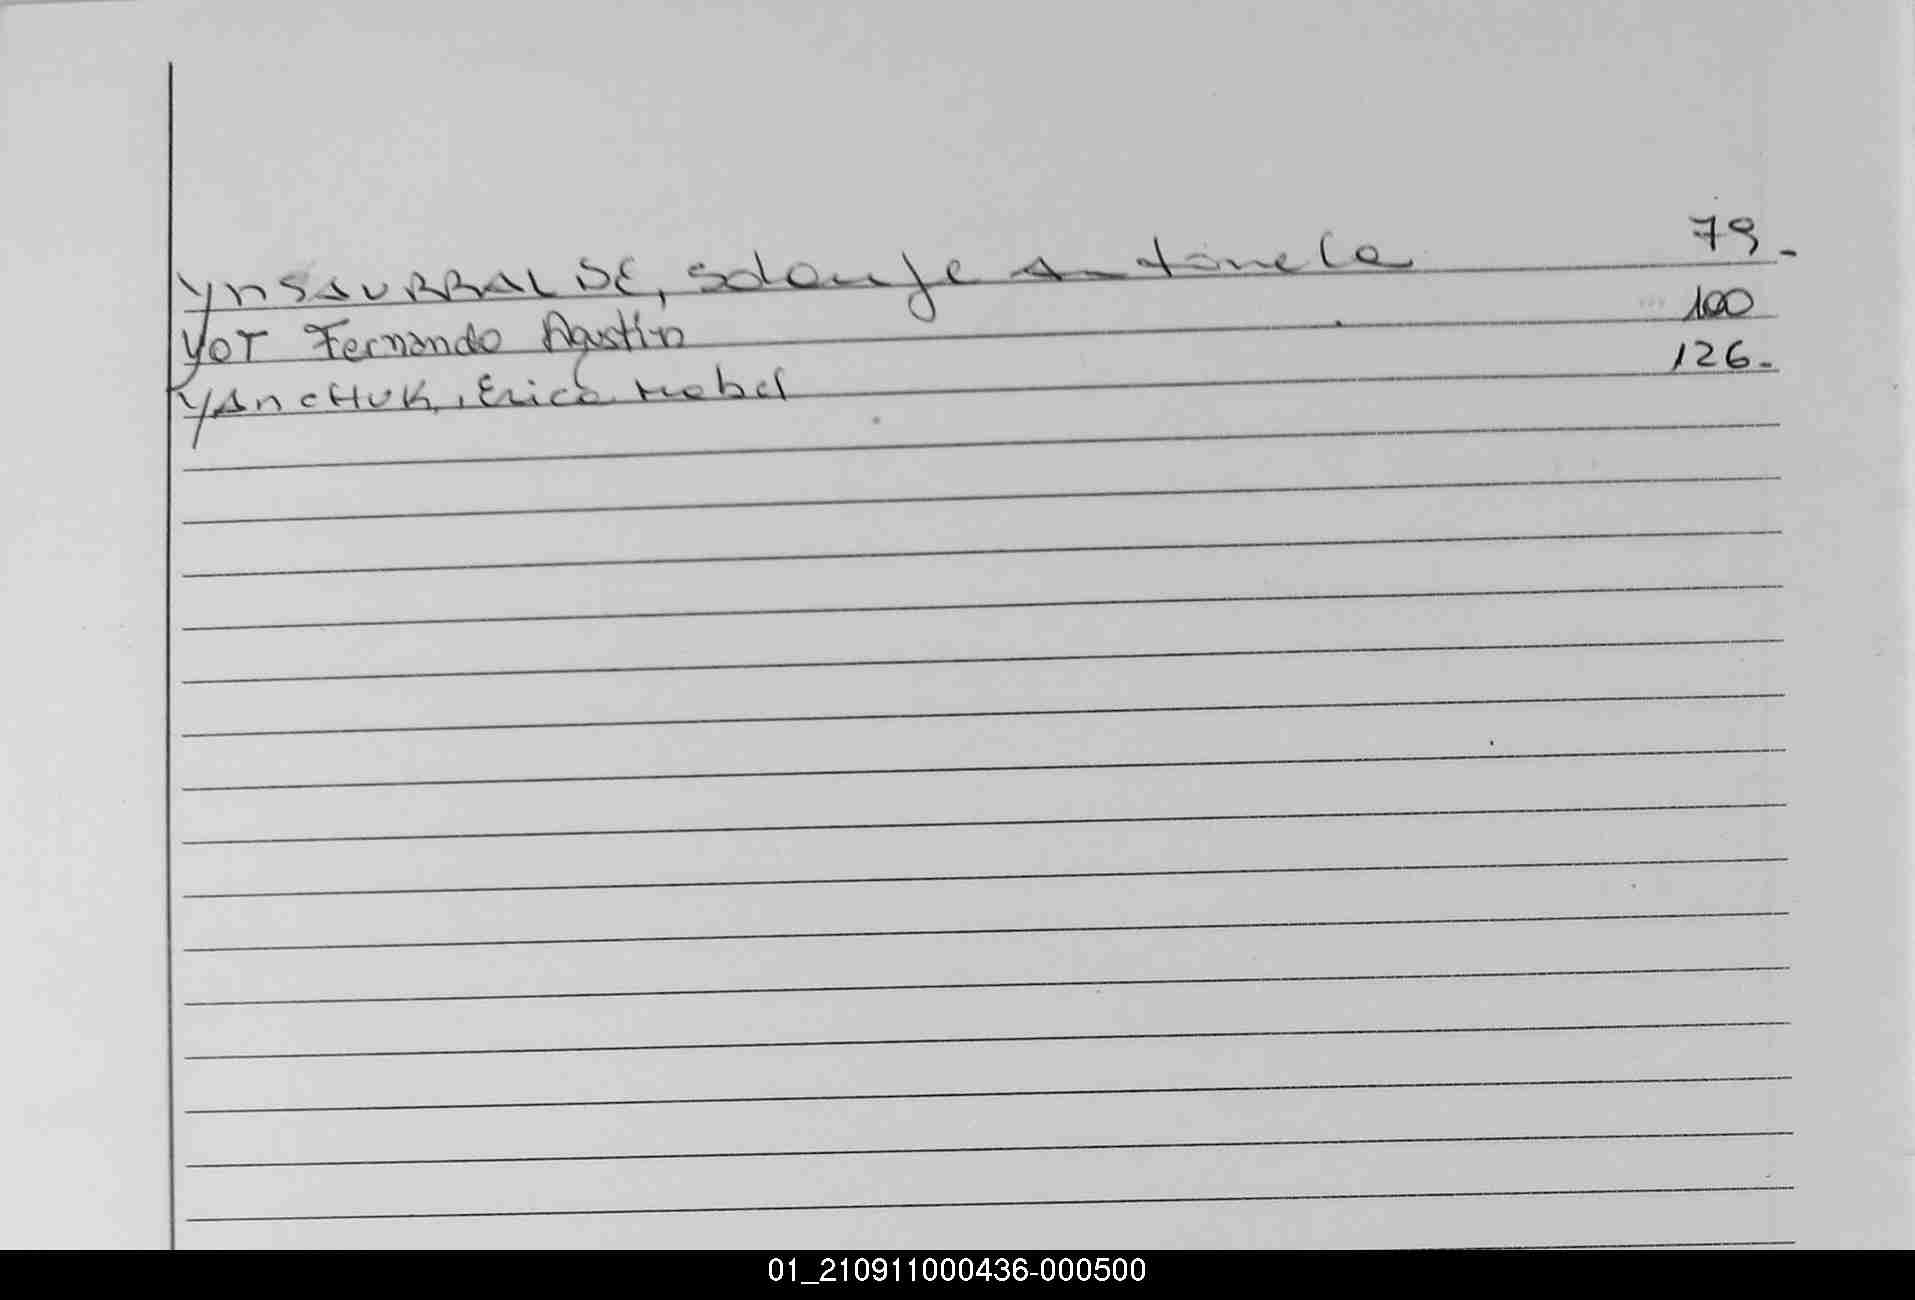 YNSAURRALDE, Solange Antonela 79.
YOT Fernando Agustín 100
YANCHUK, Erica Mabel 126.
01_210911000436-000500